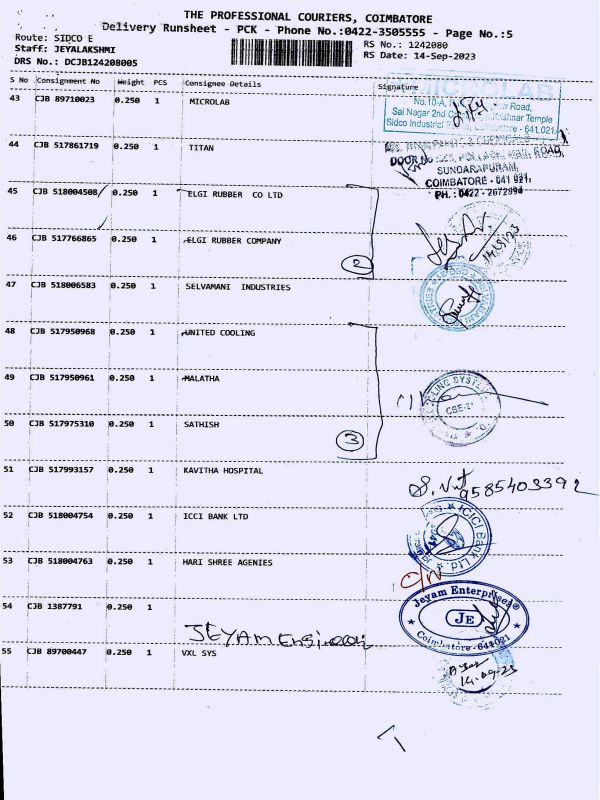 THE PROFESSIONAL COURIERS, COIMBATORE
Delivery Runsheet - PCK - Phone No.:0422-3505555 - Page No.:5
Route: SIDCO E
Staff: JEYALAKSHMI
DRS No.: DCJB124208005
RS No.: 1242080
RS Date: 14-Sep-2023
S No Consignment No Weight PCS Consignee Details Signature
43 CJB 89710023 0.250 1 MICROLAB
MICROLAB
No.10-A,
Road,
Sai Nagar 2nd
Krishnar Temple
Sidco Industrial
Coimbatore - 641 021.
44 CJB 517861719 0.250 1 TITAN
DOOR No
ROAD,
SUNDARAPURAM,
COIMBATORE - 641 021.
PH.: 0422 - 2672994
45 CJB 518004508 0.250 1 ELGI RUBBER CO LTD
46 CJB 517766865 0.250 1 ELGI RUBBER COMPANY
2
14/9/23
47 CJB 518006583 0.250 1 SELVAMANI INDUSTRIES
48 CJB 517950968 0.250 1 UNITED COOLING
49 CJB 517950961 0.250 1 MALATHA
CBE-21
50 CJB 517975310 0.250 1 SATHISH
3
51 CJB 517993157 0.250 1 KAVITHA HOSPITAL
9585403392
52 CJB 518004754 0.250 1 ICCI BANK LTD
ICICI Bank Ltd.
53 CJB 518004763 0.250 1 HARI SHREE AGENIES
54 CJB 1387791 0.250 1
JEYAM Engineering
Jeyam Enterprises
JE
Coimbatore - 641021
55 CJB 89700447 0.250 1 VXL SYS
14.09.23